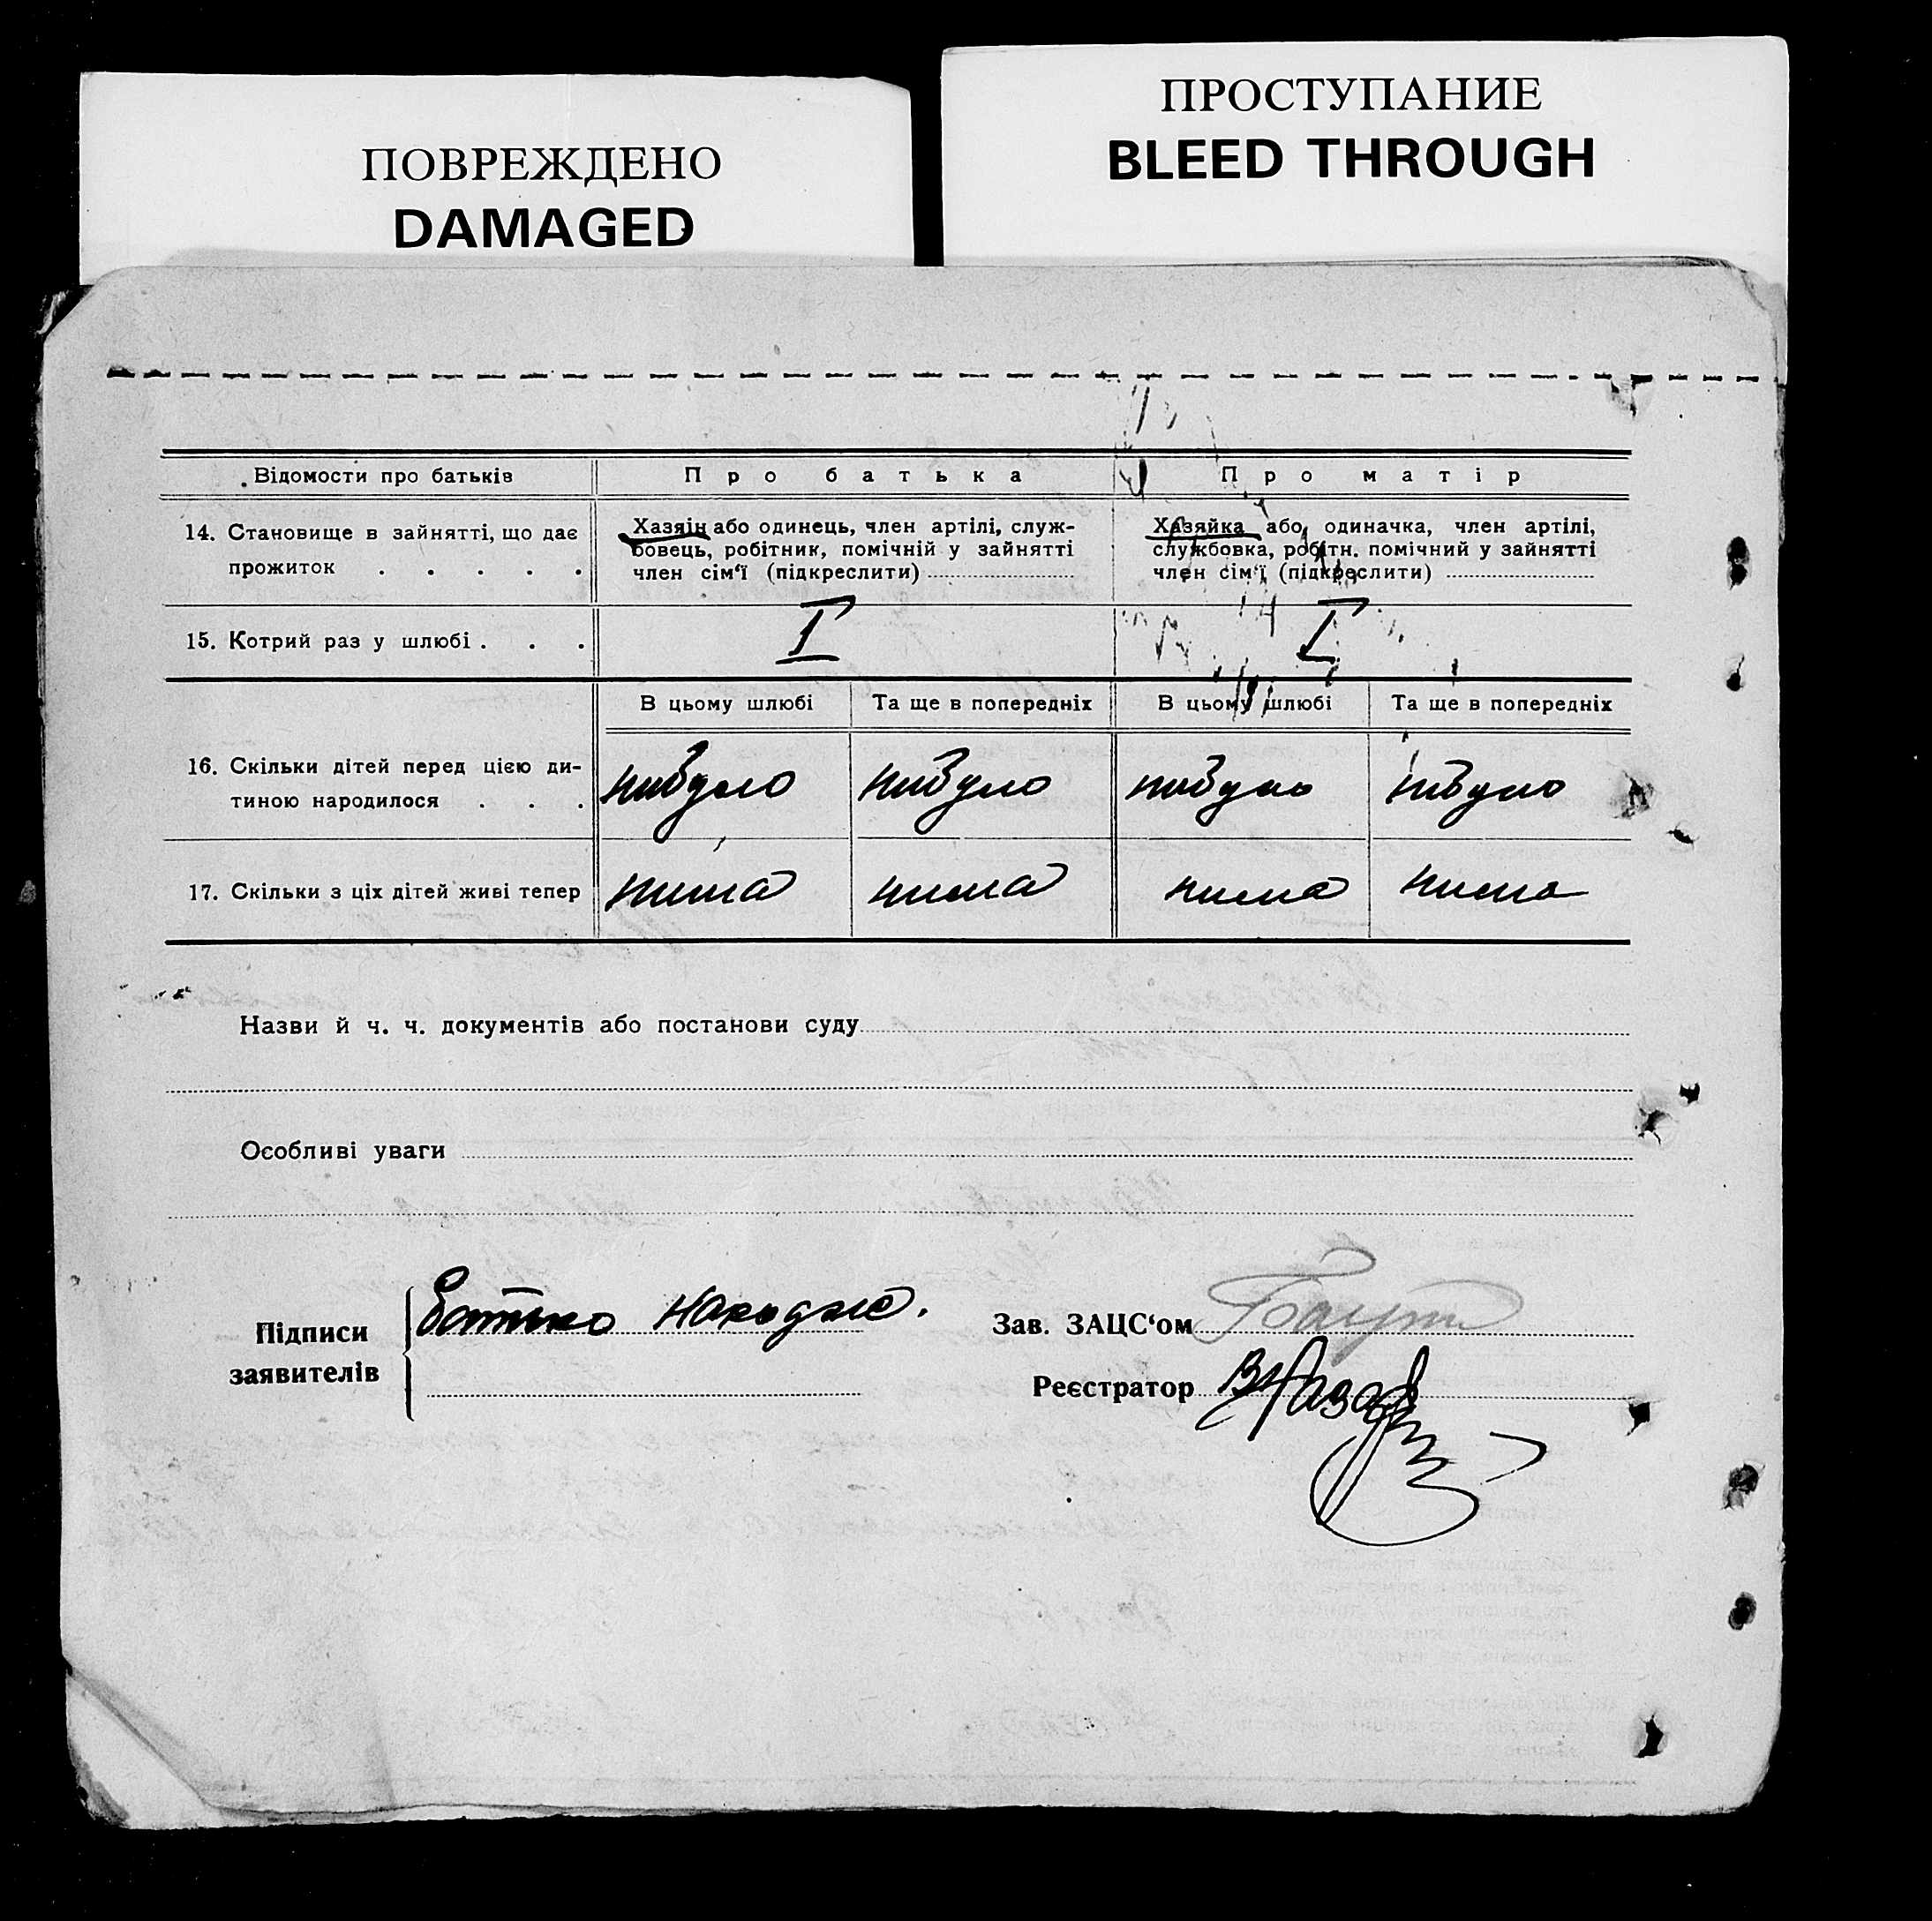 ПОВРЕЖДЕНО
DAMAGED
ПРОСТУПАНИЕ
BLEED THROUGH
Відомости про батьків Про батька Про матір
14. Становище в зайнятті, що дає
прожиток . . . . .
Хазяін або одинець, член артілі, служ-
бовець, робітник, помічній у зайнятті
член сім‘ї (підкреслити)
Хазяйка або одиначка, член артілі,
службовка, робітн. помічний у зайнятті
член сім‘ї (підкреслити)
15. Котрий раз у шлюбі . . . I I
В цьому шлюбі Та ще в попередніх В цьому шлюбі Та ще в попередніх
16. Скільки дітей перед цією ди-
тиною народилося . . .
нибуло нибуло нибуло нибуло
17. Скільки з ціх дітей живі тепер нима нима нима нима
Назви й ч. ч. документів або постанови суду
Особливі уваги
Підписи
заявителів
Батько
Зав. ЗАЦС‘ом
Реєстратор